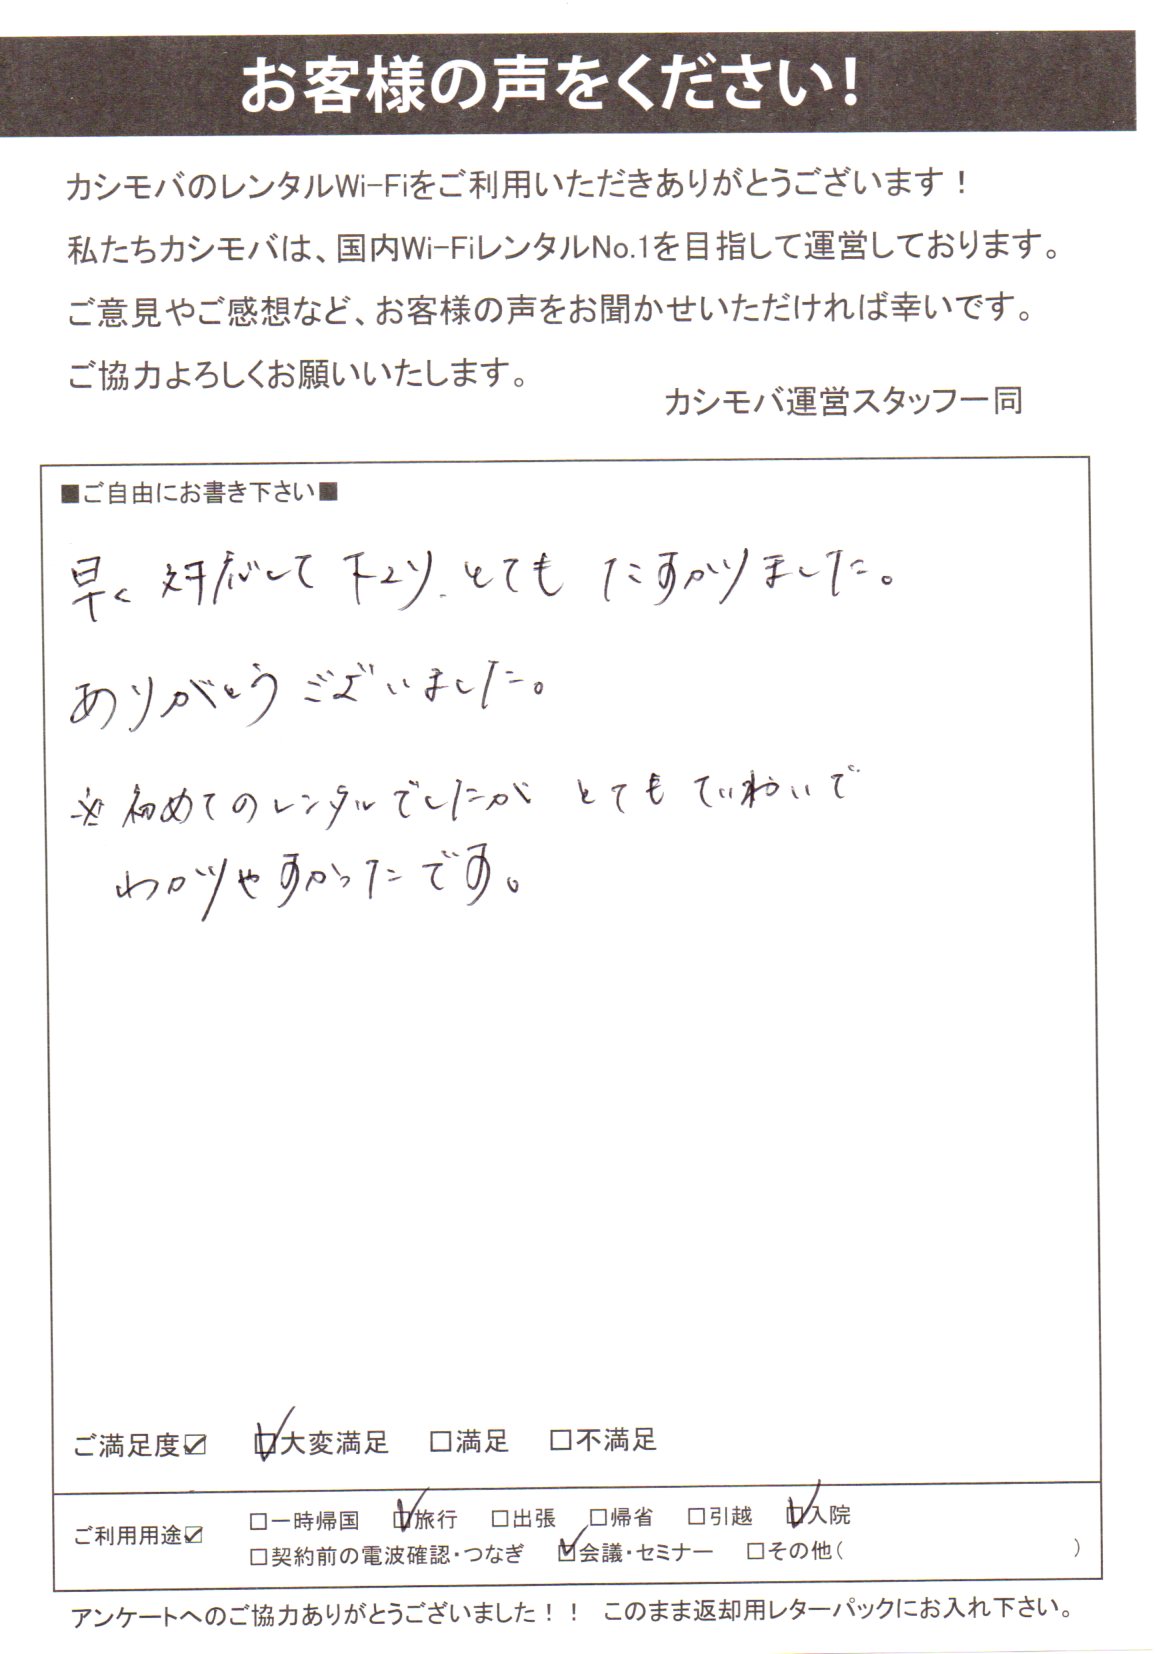 お客様の声をください！
カシモバのレンタルWi-Fiをご利用いただきありがとうございます！
私たちカシモバは、国内Wi-FiレンタルNo.1を目指して運営しております。
ご意見やご感想など、お客様の声をお聞かせいただければ幸いです。
ご協力よろしくお願いいたします。
カシモバ運営スタッフ一同
■ご自由にお書き下さい■
早く対応して下さり、とても たすかりました。
ありがとうございました。
※初めてのレンタルでしたが とても ていねいで
わかりやすかったです。
ご満足度☑ ☑大変満足 □満足 □不満足
ご利用用途☑ □一時帰国 ☑旅行 □出張 □帰省 □引越 ☑入院
□契約前の電波確認・つなぎ ☑会議・セミナー □その他（ ）
アンケートへのご協力ありがとうございました！！ このまま返却用レターパックにお入れ下さい。